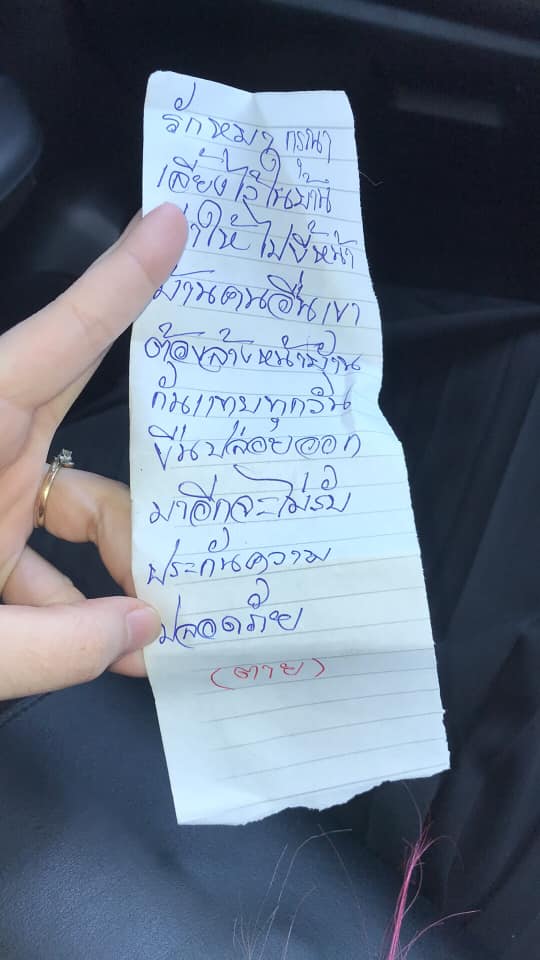 รักหมา กรุณา
เลี้ยงไว้ในบ้าน
ให้ ไปขี้หน้า
บ้านคนอื่น เขา
ต้องล้างหน้าบ้าน
กันแทบทุกวัน
ขืนปล่อยออก
มาอีกจะไม่รับ
ประกันความ
ปลอดภัย
(ตาย)